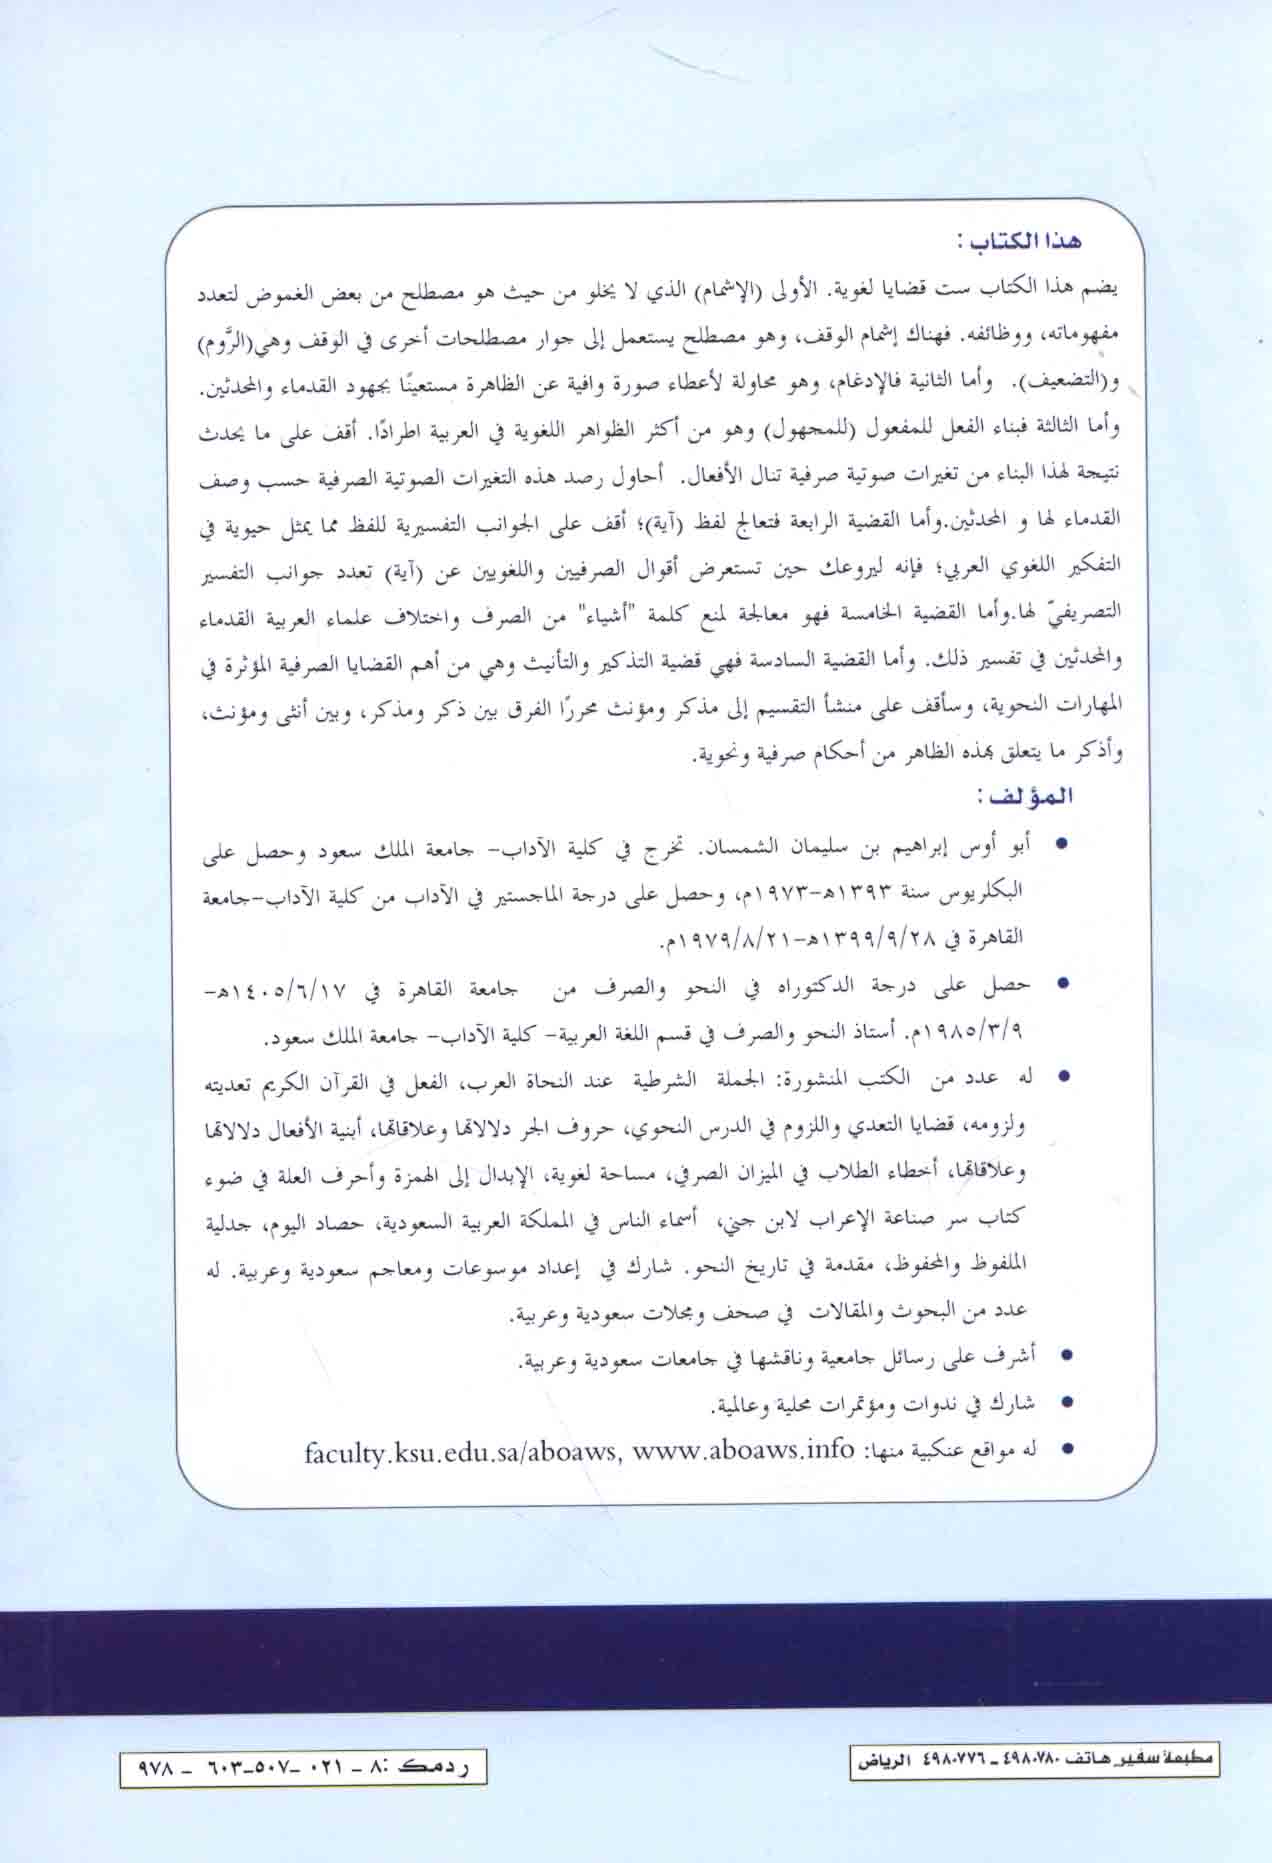 هذا الكتاب :
يضم هذا الكتاب ست قضايا لغوية. الأولى (الإشمام) الذي لا يخلو من حيث هو مصطلح من بعض الغموض لتعدد
مفهوماته، ووظائفه. فهناك إشمام الوقف، وهو مصطلح يستعمل إلى جوار مصطلحات أخرى في الوقف وهي(الرَّوم)
و(التضعيف). وأما الثانية فالإدغام، وهو محاولة لأعطاء صورة وافية عن الظاهرة مستعينًا بجهود القدماء والمحدثين.
وأما الثالثة فبناء الفعل للمفعول (للمجهول) وهو من أكثر الظواهر اللغوية في العربية اطرادًا. أقف على ما يحدث
نتيجة لهذا البناء من تغيرات صوتية صرفية تنال الأفعال. أحاول رصد هذه التغيرات الصوتية الصرفية حسب وصف
القدماء لها و المحدثين.وأما القضية الرابعة فتعالج لفظ (آية)؛ أقف على الجوانب التفسيرية للفظ مما يمثل حيوية في
التفكير اللغوي العربي؛ فإنه ليروعك حين تستعرض أقوال الصرفيين واللغويين عن (آية) تعدد جوانب التفسير
التصريفيّ لها.وأما القضية الخامسة فهو معالجة لمنع كلمة "أشياء" من الصرف واختلاف علماء العربية القدماء
والمحدثين في تفسير ذلك. وأما القضية السادسة فهي قضية التذكير والتأنيث وهي من أهم القضايا الصرفية المؤثرة في
المهارات النحوية، وسأقف على منشأ التقسيم إلى مذكر ومؤنث محررًا الفرق بين ذكر ومذكر، وبين أنثى ومؤنث،
وأذكر ما يتعلق بهذه الظاهر من أحكام صرفية ونحوية.
المؤلف :
• أبو أوس إبراهيم بن سليمان الشمسان. تخرج في كلية الآداب- جامعة الملك سعود وحصل على
البكلريوس سنة ١٣٩٣هـ-١٩٧٣م، وحصل على درجة الماجستير في الآداب من كلية الآداب-جامعة
القاهرة في ١٣٩٩/٩/٢٨هـ-١٩٧٩/٨/٢١م.
• حصل على درجة الدكتوراه في النحو والصرف من جامعة القاهرة في ١٤٠٥/٦/١٧هـ-
١٩٨٥/٣/٩م. أستاذ النحو والصرف في قسم اللغة العربية- كلية الآداب- جامعة الملك سعود.
• له عدد من الكتب المنشورة: الجملة الشرطية عند النحاة العرب، الفعل في القرآن الكريم تعديته
ولزومه، قضايا التعدي واللزوم في الدرس النحوي، حروف الجر دلالاتها وعلاقاتها، أبنية الأفعال دلالاتها
وعلاقاتها، أخطاء الطلاب في الميزان الصرفي، مساحة لغوية، الإبدال إلى الهمزة وأحرف العلة في ضوء
كتاب سر صناعة الإعراب لابن جني، أسماء الناس في المملكة العربية السعودية، حصاد اليوم، جدلية
الملفوظ والمحفوظ، مقدمة في تاريخ النحو. شارك في إعداد موسوعات ومعاجم سعودية وعربية. له
عدد من البحوث والمقالات في صحف ومجلات سعودية وعربية.
• أشرف على رسائل جامعية وناقشها في جامعات سعودية وعربية.
• شارك في ندوات ومؤتمرات محلية وعالمية.
• له مواقع عنكبية منها: faculty.ksu.edu.sa/aboaws, www.aboaws.info
مطبعة سفير هاتف ٤٩٨٠٧٨٠ ـ ٤٩٨٠٧٧٦ الرياض
ردمك :٨ ـ ٠٢١ ـ٥٠٧ـ٦٠٣ ـ ٩٧٨